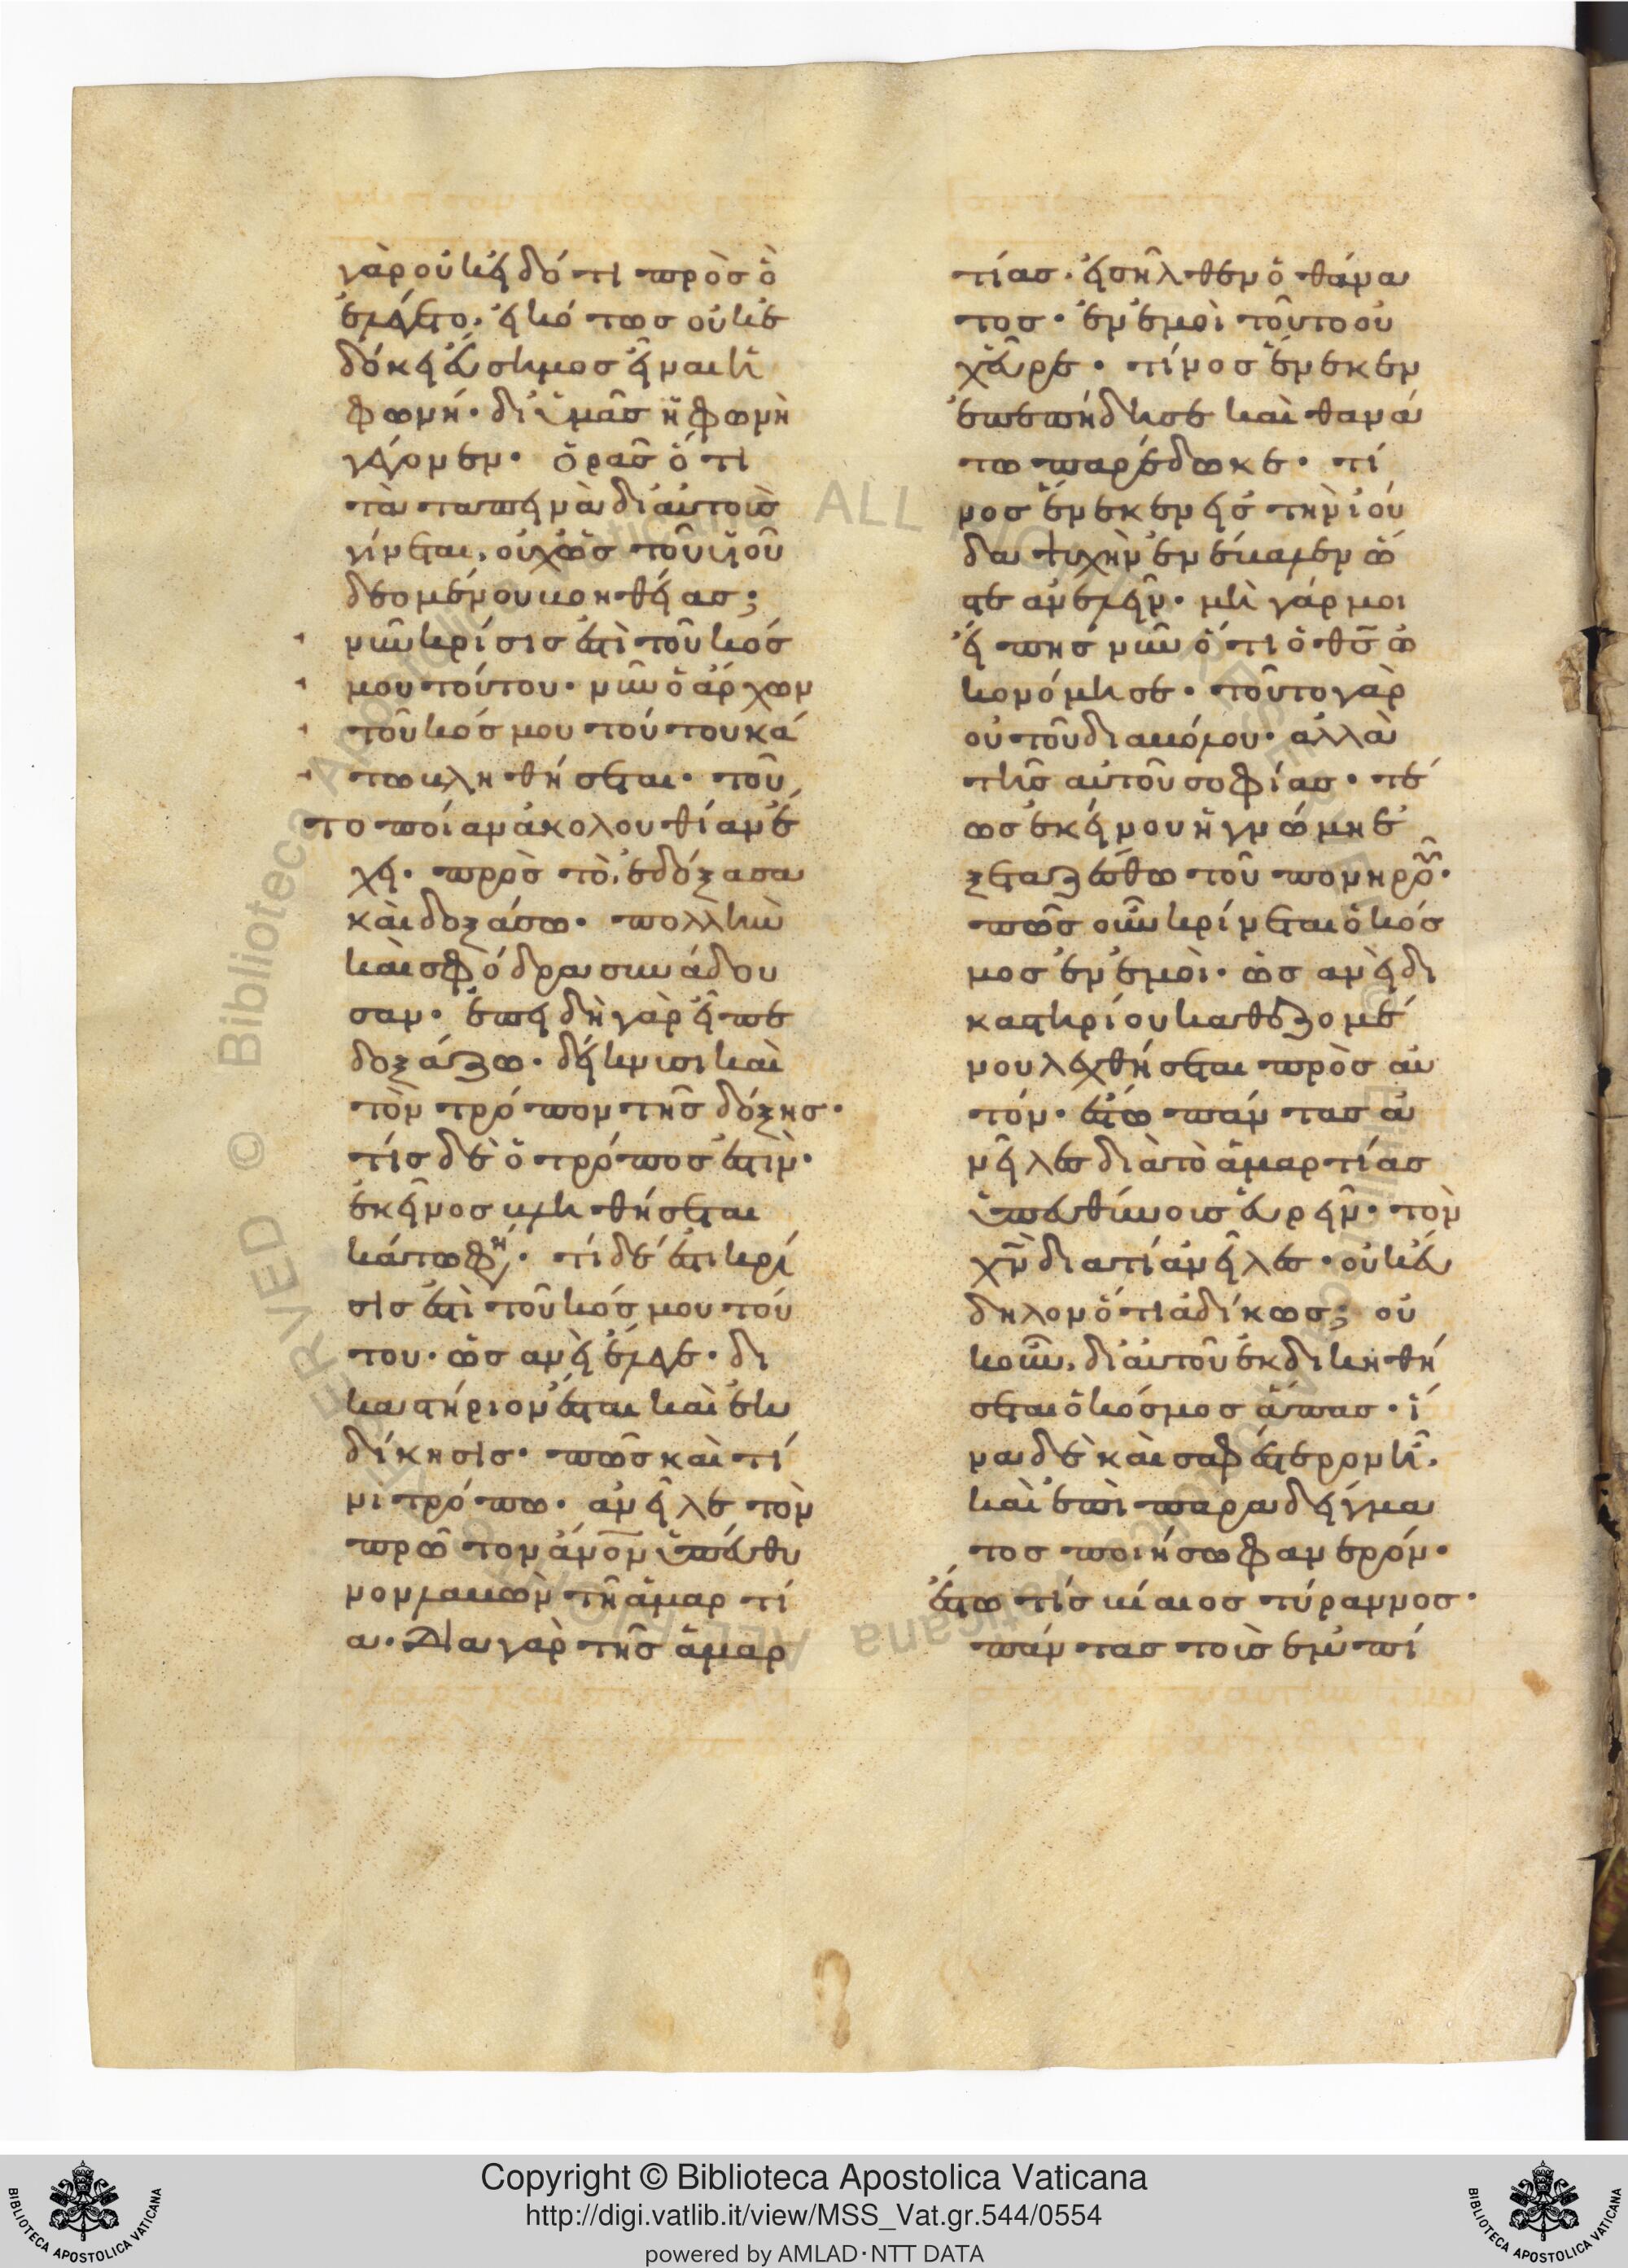 γὰρ οὐκ ἤδό τι πρὸς ὃ
ἐλέγετο. εἰκότως οὐκ ἐ
δόκει ἄσημος εἶναι ἡ
φωνή· δι ὑμᾶς ἡ φωνὴ
γέγονεν· ὁρᾶς ὅτι
τὰ ταπεινὰ δι αὐτοὺς
γίνεται, οὐχ ὡς τοῦ υἱοῦ
δεομένου βοηθείας;
νῦν κρίσις ἐστὶ τοῦ κόσ
μου τούτου· νῦν ὁ ἄρχων
τοῦ κόσμου τούτου κά
τω βληθήσεται· τοῦ
το ποίαν ἀκολουθίαν ἔ
χει· πρὸς τὸ, ἐδόξασα
καὶ δοξάσω· πολλὴν
καὶ σφόδρα συνάδου
σαν· ἐπειδὴ γὰρ εἶπε
δοξάζω· δείκνυσι καὶ
τὸν τρόπον τῆς δόξης·
τίς δὲ ὁ τρόπος ἐστὶν·
ἐκεῖνος βληθήσεται
κάτω φη· τί δέ ἐστι κρί
σις ἐστὶ τοῦ κόσμου τού
του· ὡς ἂν εἰ ἔλεγε· δι
καστήριον ἔσται καὶ ἐκ
δίκησις· πῶς καὶ τί
νι τρόπω· ἀνεῖλε τὸν
πρῶτον ἄνον ὑπεύθυ
νον λαβὼν τῆ ἁμαρτί
α· διὰ γὰρ τῆς ἁμαρ
τίας· εἰσῆλθεν ὁ θάνα
τος· ἐν ἐμοὶ τοῦτο οὐ
χ εὗρε· τίνος ἕνεκεν
ἐπεπήδησε καὶ θανά
τω παρέδωκε· τί
νος ἕνεκεν εἰς τὴν ἰού
δα ψυχὴν ἐνέβαλεν ὥ
στε ἀνελεῖν· μὴ γάρ μοι
εἴπης νῦν ὅτι ὁ θς ὠ
κονόμησε· τοῦτο γὰρ
οὐ τοῦ διαβόλου· ἀλλὰ
τῆς αὐτοῦ σοφίας· τέ
ως ἐκείνου ἡ γνώμη ἐ
ξεταζέσθω τοῦ πονηροῦ·
πῶς οὖν κρίνεται ὁ κόσ
μος ἐν ἐμοὶ· ὡς ἂν εἰ δι
καστηρίου καθεζομέ
νου λεχθήσεται πρὸς αὐ
τόν· ἔστω πάντας ἀ
νεῖλες διὰ τὸ ἁμαρτίας
ὑπευθύνους εὑρεῖν· τὸν
χν διατί ἀνεῖλες· οὐκ εὔ
δηλον ὅτι ἀδίκως; οὐ
κοῦν, δι αὐτοῦ ἐκδικηθή
σεται ὁ κόσμος ἅπας· ἵ
να δὲ καὶ σαφέστερον ἦ,
καὶ ἐπὶ παραδείγμα
τος ποιήσω φανερόν·
ἔστω τίς βίαιος τύραννος·
πάντας τοὺς ἐμπί